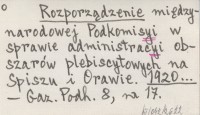 Rozporządzenie między-
narodowej Podkomisyi w
sprawie administracyi ob-
szarów plebiscytowych na
Spiszu i Orawie. 1920...
— Gaz. Podh. 8, na 17.